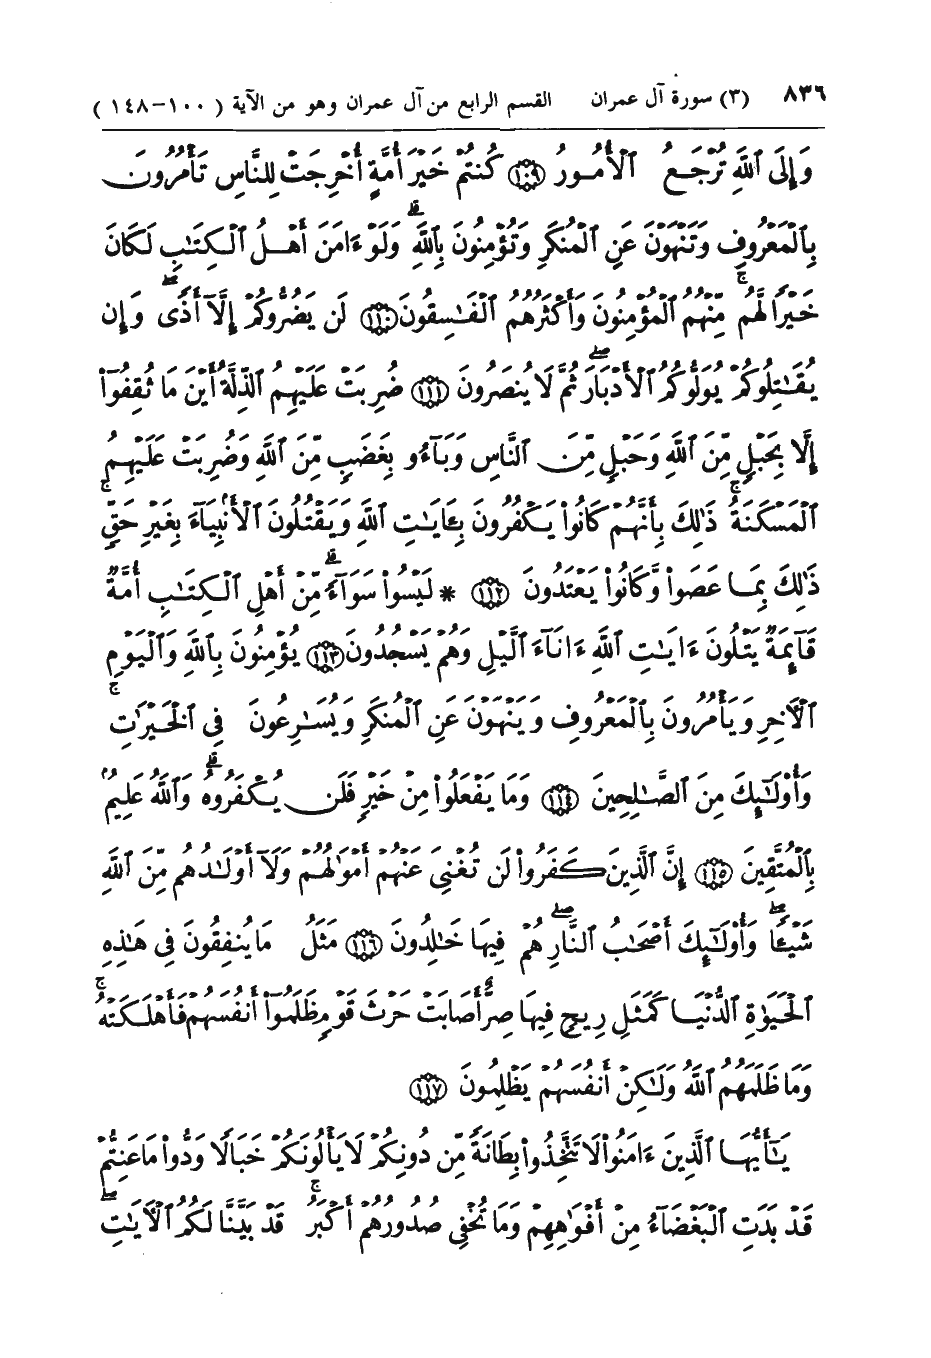 ٨٣٦ (٣) سورة آل عمران القسم الرابع من آل عمران وهو من الآية ( ١٠٠-١٤٨ )
وَإِلَى ٱللَّهِ تُرْجَعُ ٱلْأُمُورُ ﴿١٠٩﴾ كُنتُمْ خَيْرَ أُمَّةٍ أُخْرِجَتْ لِلنَّاسِ تَأْمُرُونَ
بِٱلْمَعْرُوفِ وَتَنْهَوْنَ عَنِ ٱلْمُنكَرِ وَتُؤْمِنُونَ بِٱللَّهِ ۗ وَلَوْ ءَامَنَ أَهْلُ ٱلْكِتَٰبِ لَكَانَ
خَيْرًا لَّهُم ۚ مِّنْهُمُ ٱلْمُؤْمِنُونَ وَأَكْثَرُهُمُ ٱلْفَٰسِقُونَ ﴿١١٠﴾ لَن يَضُرُّوكُمْ إِلَّآ أَذًى ۖ وَإِن
يُقَٰتِلُوكُمْ يُوَلُّوكُمُ ٱلْأَدْبَارَ ۖ ثُمَّ لَا يُنصَرُونَ ﴿١١١﴾ ضُرِبَتْ عَلَيْهِمُ ٱلذِّلَّةُ أَيْنَ مَا ثُقِفُوٓا۟
إِلَّا بِحَبْلٍ مِّنَ ٱللَّهِ وَحَبْلٍ مِّنَ ٱلنَّاسِ وَبَآءُو بِغَضَبٍ مِّنَ ٱللَّهِ وَضُرِبَتْ عَلَيْهِمُ
ٱلْمَسْكَنَةُ ۚ ذَٰلِكَ بِأَنَّهُمْ كَانُوا۟ يَكْفُرُونَ بِـَٔايَٰتِ ٱللَّهِ وَيَقْتُلُونَ ٱلْأَنۢبِيَآءَ بِغَيْرِ حَقٍّ ۚ
ذَٰلِكَ بِمَا عَصَوا۟ وَّكَانُوا۟ يَعْتَدُونَ ﴿١١٢﴾ * لَيْسُوا۟ سَوَآءً ۗ مِّنْ أَهْلِ ٱلْكِتَٰبِ أُمَّةٌ
قَآئِمَةٌ يَتْلُونَ ءَايَٰتِ ٱللَّهِ ءَانَآءَ ٱلَّيْلِ وَهُمْ يَسْجُدُونَ ﴿١١٣﴾ يُؤْمِنُونَ بِٱللَّهِ وَٱلْيَوْمِ
ٱلْـَٔاخِرِ وَيَأْمُرُونَ بِٱلْمَعْرُوفِ وَيَنْهَوْنَ عَنِ ٱلْمُنكَرِ وَيُسَٰرِعُونَ فِى ٱلْخَيْرَٰتِ ۚ
وَأُو۟لَٰٓئِكَ مِنَ ٱلصَّٰلِحِينَ ﴿١١٤﴾ وَمَا يَفْعَلُوا۟ مِنْ خَيْرٍ فَلَن يُكْفَرُوهُ ۗ وَٱللَّهُ عَلِيمٌۢ
بِٱلْمُتَّقِينَ ﴿١١٥﴾ إِنَّ ٱلَّذِينَ كَفَرُوا۟ لَن تُغْنِىَ عَنْهُمْ أَمْوَٰلُهُمْ وَلَآ أَوْلَٰدُهُم مِّنَ ٱللَّهِ
شَيْـًٔا ۖ وَأُو۟لَٰٓئِكَ أَصْحَٰبُ ٱلنَّارِ ۖ هُمْ فِيهَا خَٰلِدُونَ ﴿١١٦﴾ مَثَلُ مَا يُنفِقُونَ فِى هَٰذِهِ
ٱلْحَيَوٰةِ ٱلدُّنْيَا كَمَثَلِ رِيحٍ فِيهَا صِرٌّ أَصَابَتْ حَرْثَ قَوْمٍ ظَلَمُوٓا۟ أَنفُسَهُمْ فَأَهْلَكَتْهُ ۚ
وَمَا ظَلَمَهُمُ ٱللَّهُ وَلَٰكِنْ أَنفُسَهُمْ يَظْلِمُونَ ﴿١١٧﴾
يَٰٓأَيُّهَا ٱلَّذِينَ ءَامَنُوا۟ لَا تَتَّخِذُوا۟ بِطَانَةً مِّن دُونِكُمْ لَا يَأْلُونَكُمْ خَبَالًا وَدُّوا۟ مَا عَنِتُّمْ
قَدْ بَدَتِ ٱلْبَغْضَآءُ مِنْ أَفْوَٰهِهِمْ وَمَا تُخْفِى صُدُورُهُمْ أَكْبَرُ ۚ قَدْ بَيَّنَّا لَكُمُ ٱلْـَٔايَٰتِ ۖ